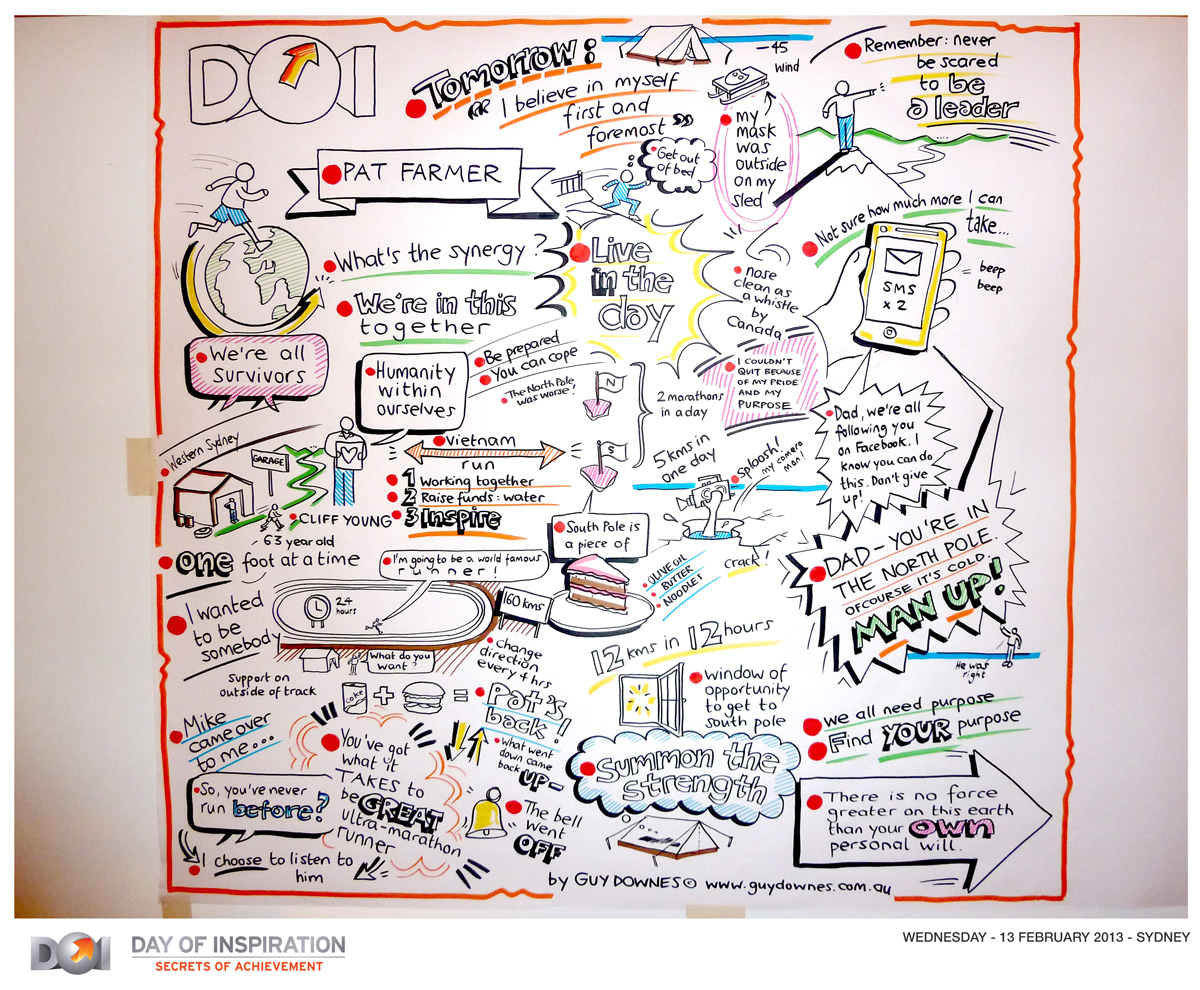 DOI
Tomorrow:
"I believe in myself
first and
foremost"
-45
wind
Remember: never
be scared
to be
a leader
my
mask
was
outside
on my
sled
Get out
of bed
PAT FARMER
Not sure how much more I can
take...
SMS
x 2
= beep
beep
What's the synergy?
We're in this
together
Live
in the
day
nose
clean as
a whistle
by
Canada
We're all
Survivors
Humanity
within
ourselves
Be prepared
You can cope
The North Pole
was worse!
N
S
2 marathons
in a day
I COULDN'T
QUIT BECAUSE
OF MY PRIDE
AND MY
PURPOSE
Dad, we're all
following you
on Facebook. I
know you can do
this. Don't give
up!
Western Sydney
GARAGE
Vietnam
run
1 Working together
2 Raise funds: water
3 Inspire
5kms in
one day
sploosh!
my camera
man!
CLIFF YOUNG
63 year old
one foot at a time
South Pole is
a piece of
OLIVE OIL
BUTTER
NOODLES
crack!
DAD - YOU'RE IN
THE NORTH POLE.
OFCOURSE IT'S COLD.
MAN UP!
He was
right
I'm going to be a world famous
runner!
24
hours
160 kms
I wanted
to be
somebody
What do you
want?
change
direction
every 4 hrs
Support on
outside of track
12 kms in 12 hours
window of
opportunity
to get to
south pole
coke
+
=
Pat's
back!
what went
down came
back UP-
Mike
came over
to me...
You've got
what it
TAKES to
be GREAT
ultra-marathon
runner
So, you've never
run before?
I choose to listen to
him
The bell
went
OFF
Summon the
strength
we all need purpose
Find YOUR purpose
There is no force
greater on this earth
than your own
personal will.
by GUY DOWNES © www.guydownes.com.au
DOI
DAY OF INSPIRATION
SECRETS OF ACHIEVEMENT
WEDNESDAY - 13 FEBRUARY 2013 - SYDNEY